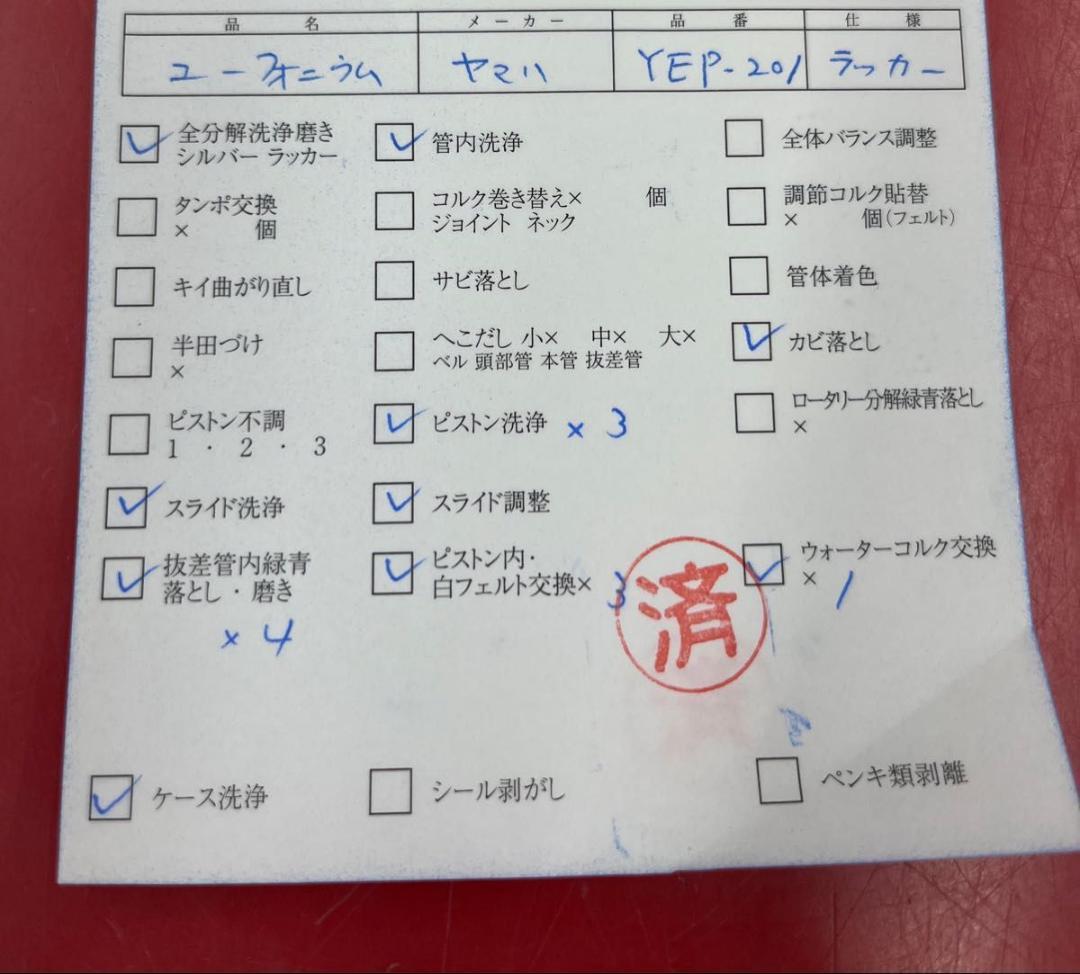 品名 メーカー 品番 仕様
ユーフォニウム ヤマハ YEP-201 ラッカー
全分解洗浄磨き
シルバー ラッカー
管内洗浄
全体バランス調整
タンポ交換
× 個
コルク巻き替え× 個
ジョイント ネック
調節コルク貼替
× 個(フェルト)
キイ曲がり直し
サビ落とし
管体着色
半田づけ
×
へこだし 小× 中× 大×
ベル 頭部管 本管 抜差管
カビ落とし
ピストン不調
1 ・ 2 ・ 3
ピストン洗浄 × 3
ロータリー分解緑青落とし
×
スライド洗浄
スライド調整
抜差管内緑青
落とし・磨き
× 4
ピストン内・
白フェルト交換× 3
済
ウォーターコルク交換
× 1
ケース洗浄
シール剥がし
ペンキ類剥離